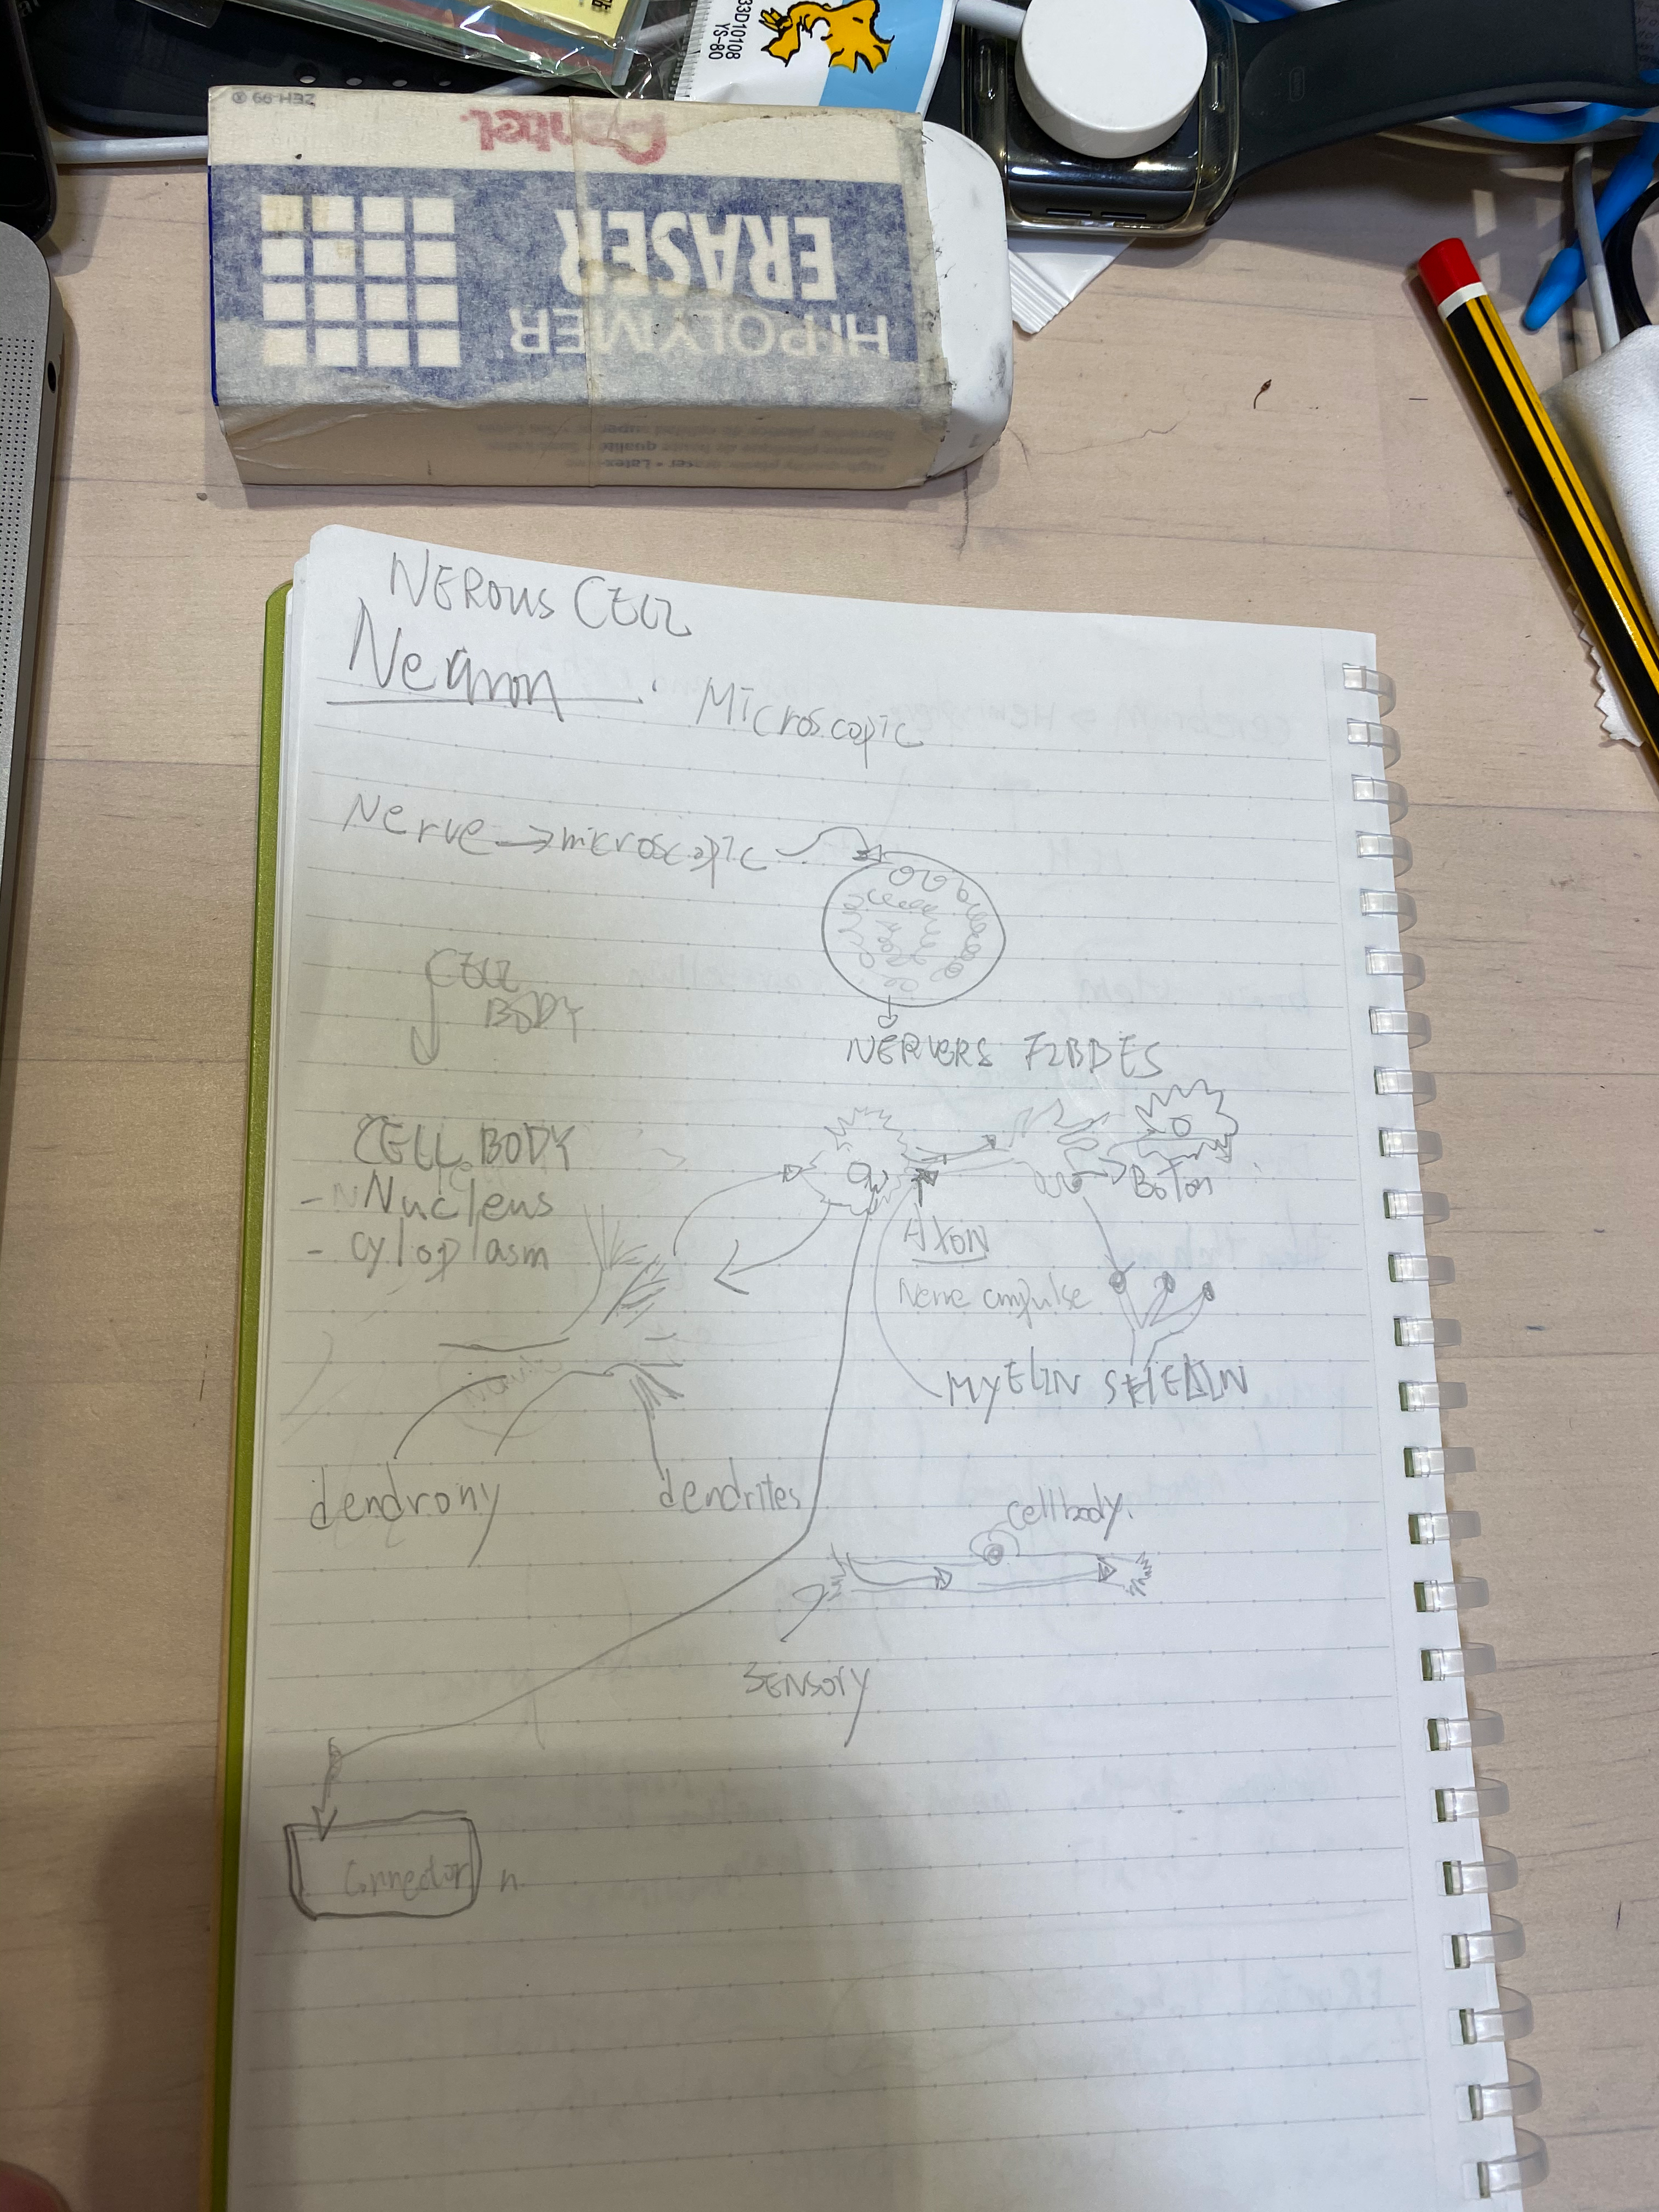 33D10108
YS-80
ZEH-99 ®
Pentel.
HI-POLYMER
ERASER
NEROUS CELL
Neuron
Microscopic
Nerve → microscopic
CELL
BODY
NERVERS FIBDES
CELL BODY
- Nucleus
- cytoplasm
Boton
AXON
Nerve impulse
MYELIN
dendrony
dendrites
cell body.
SENSORY
Connector n.